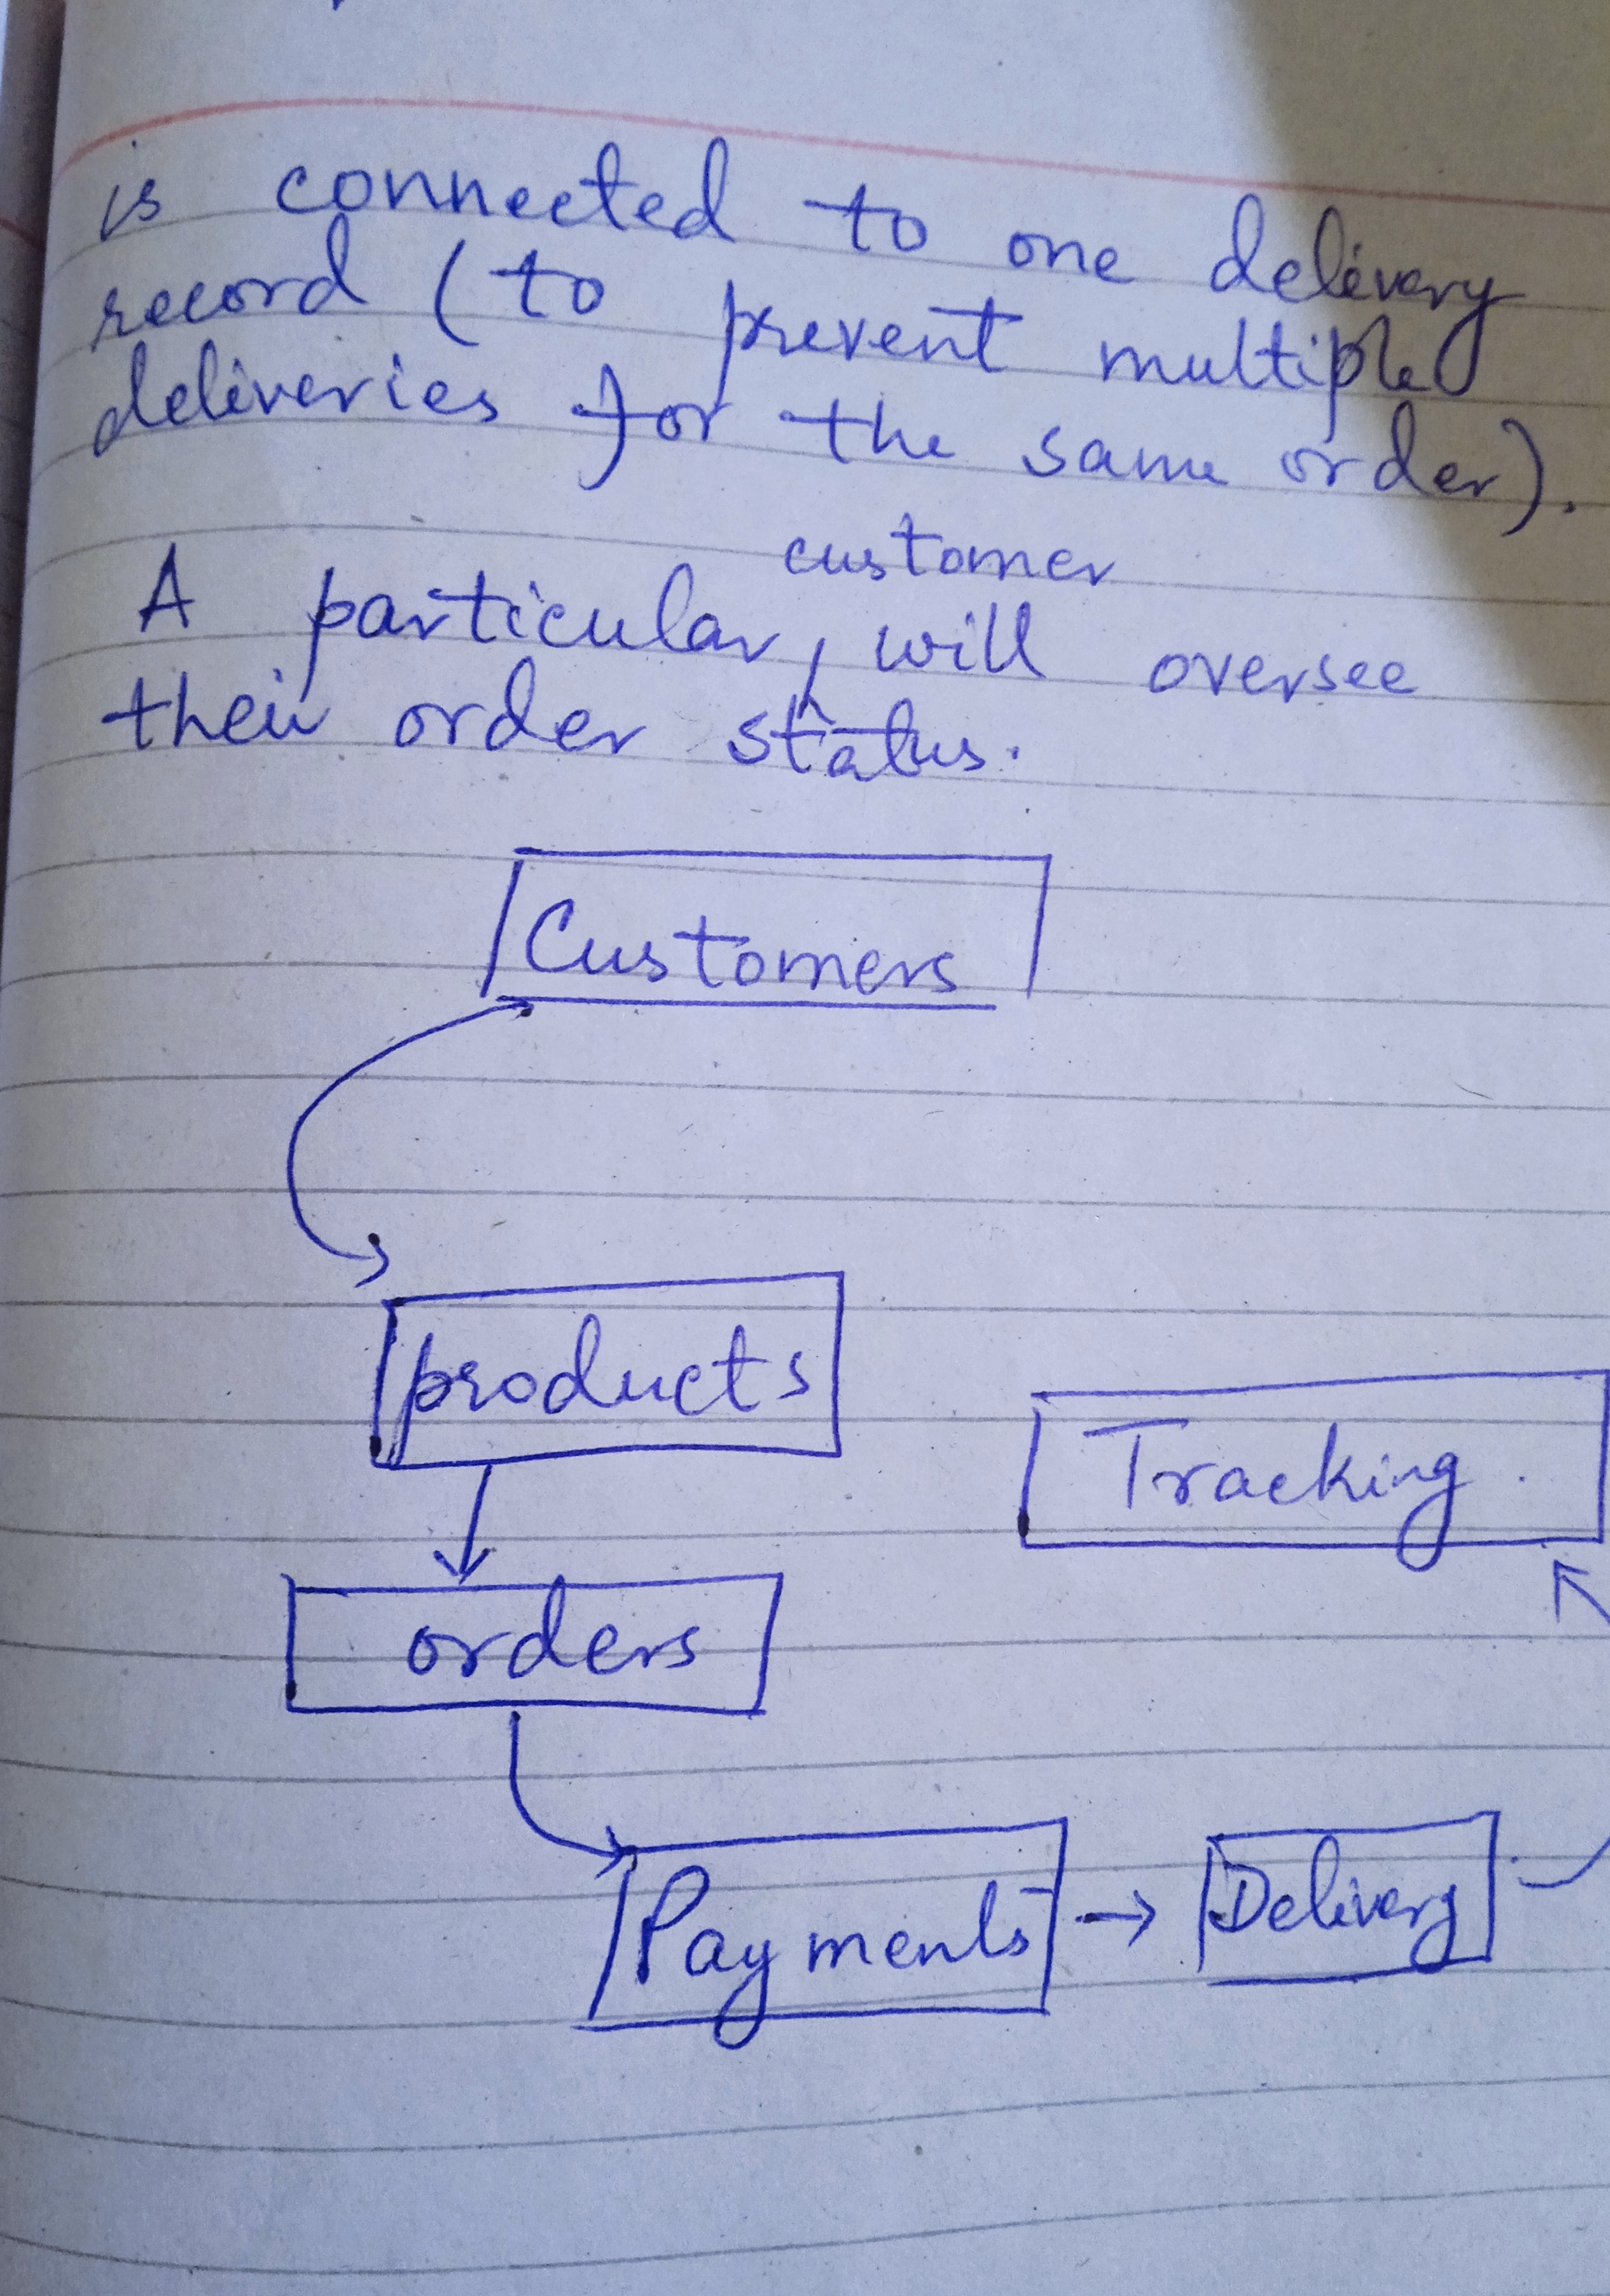 is connected to one delivery
record (to prevent multiple
deliveries for the same order).
A particular customer will oversee
their order status.
Customers
products
Tracking.
orders
Payments → Delivery